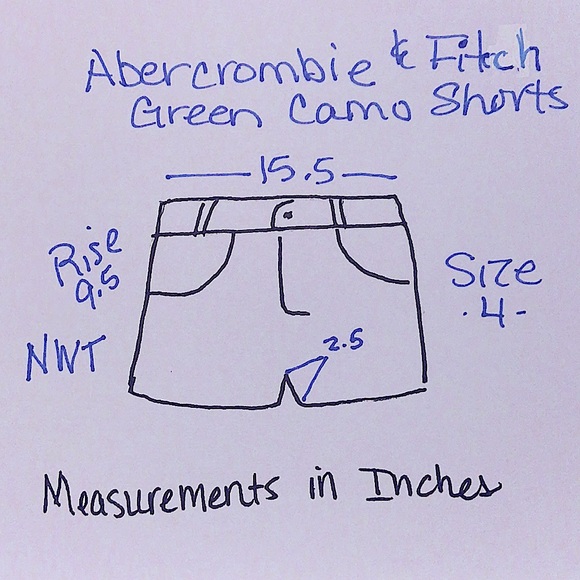 Abercrombie & Fitch
Green Camo Shorts
15.5
Rise
9.5
Size
4
NWT
2.5
Measurements in Inches